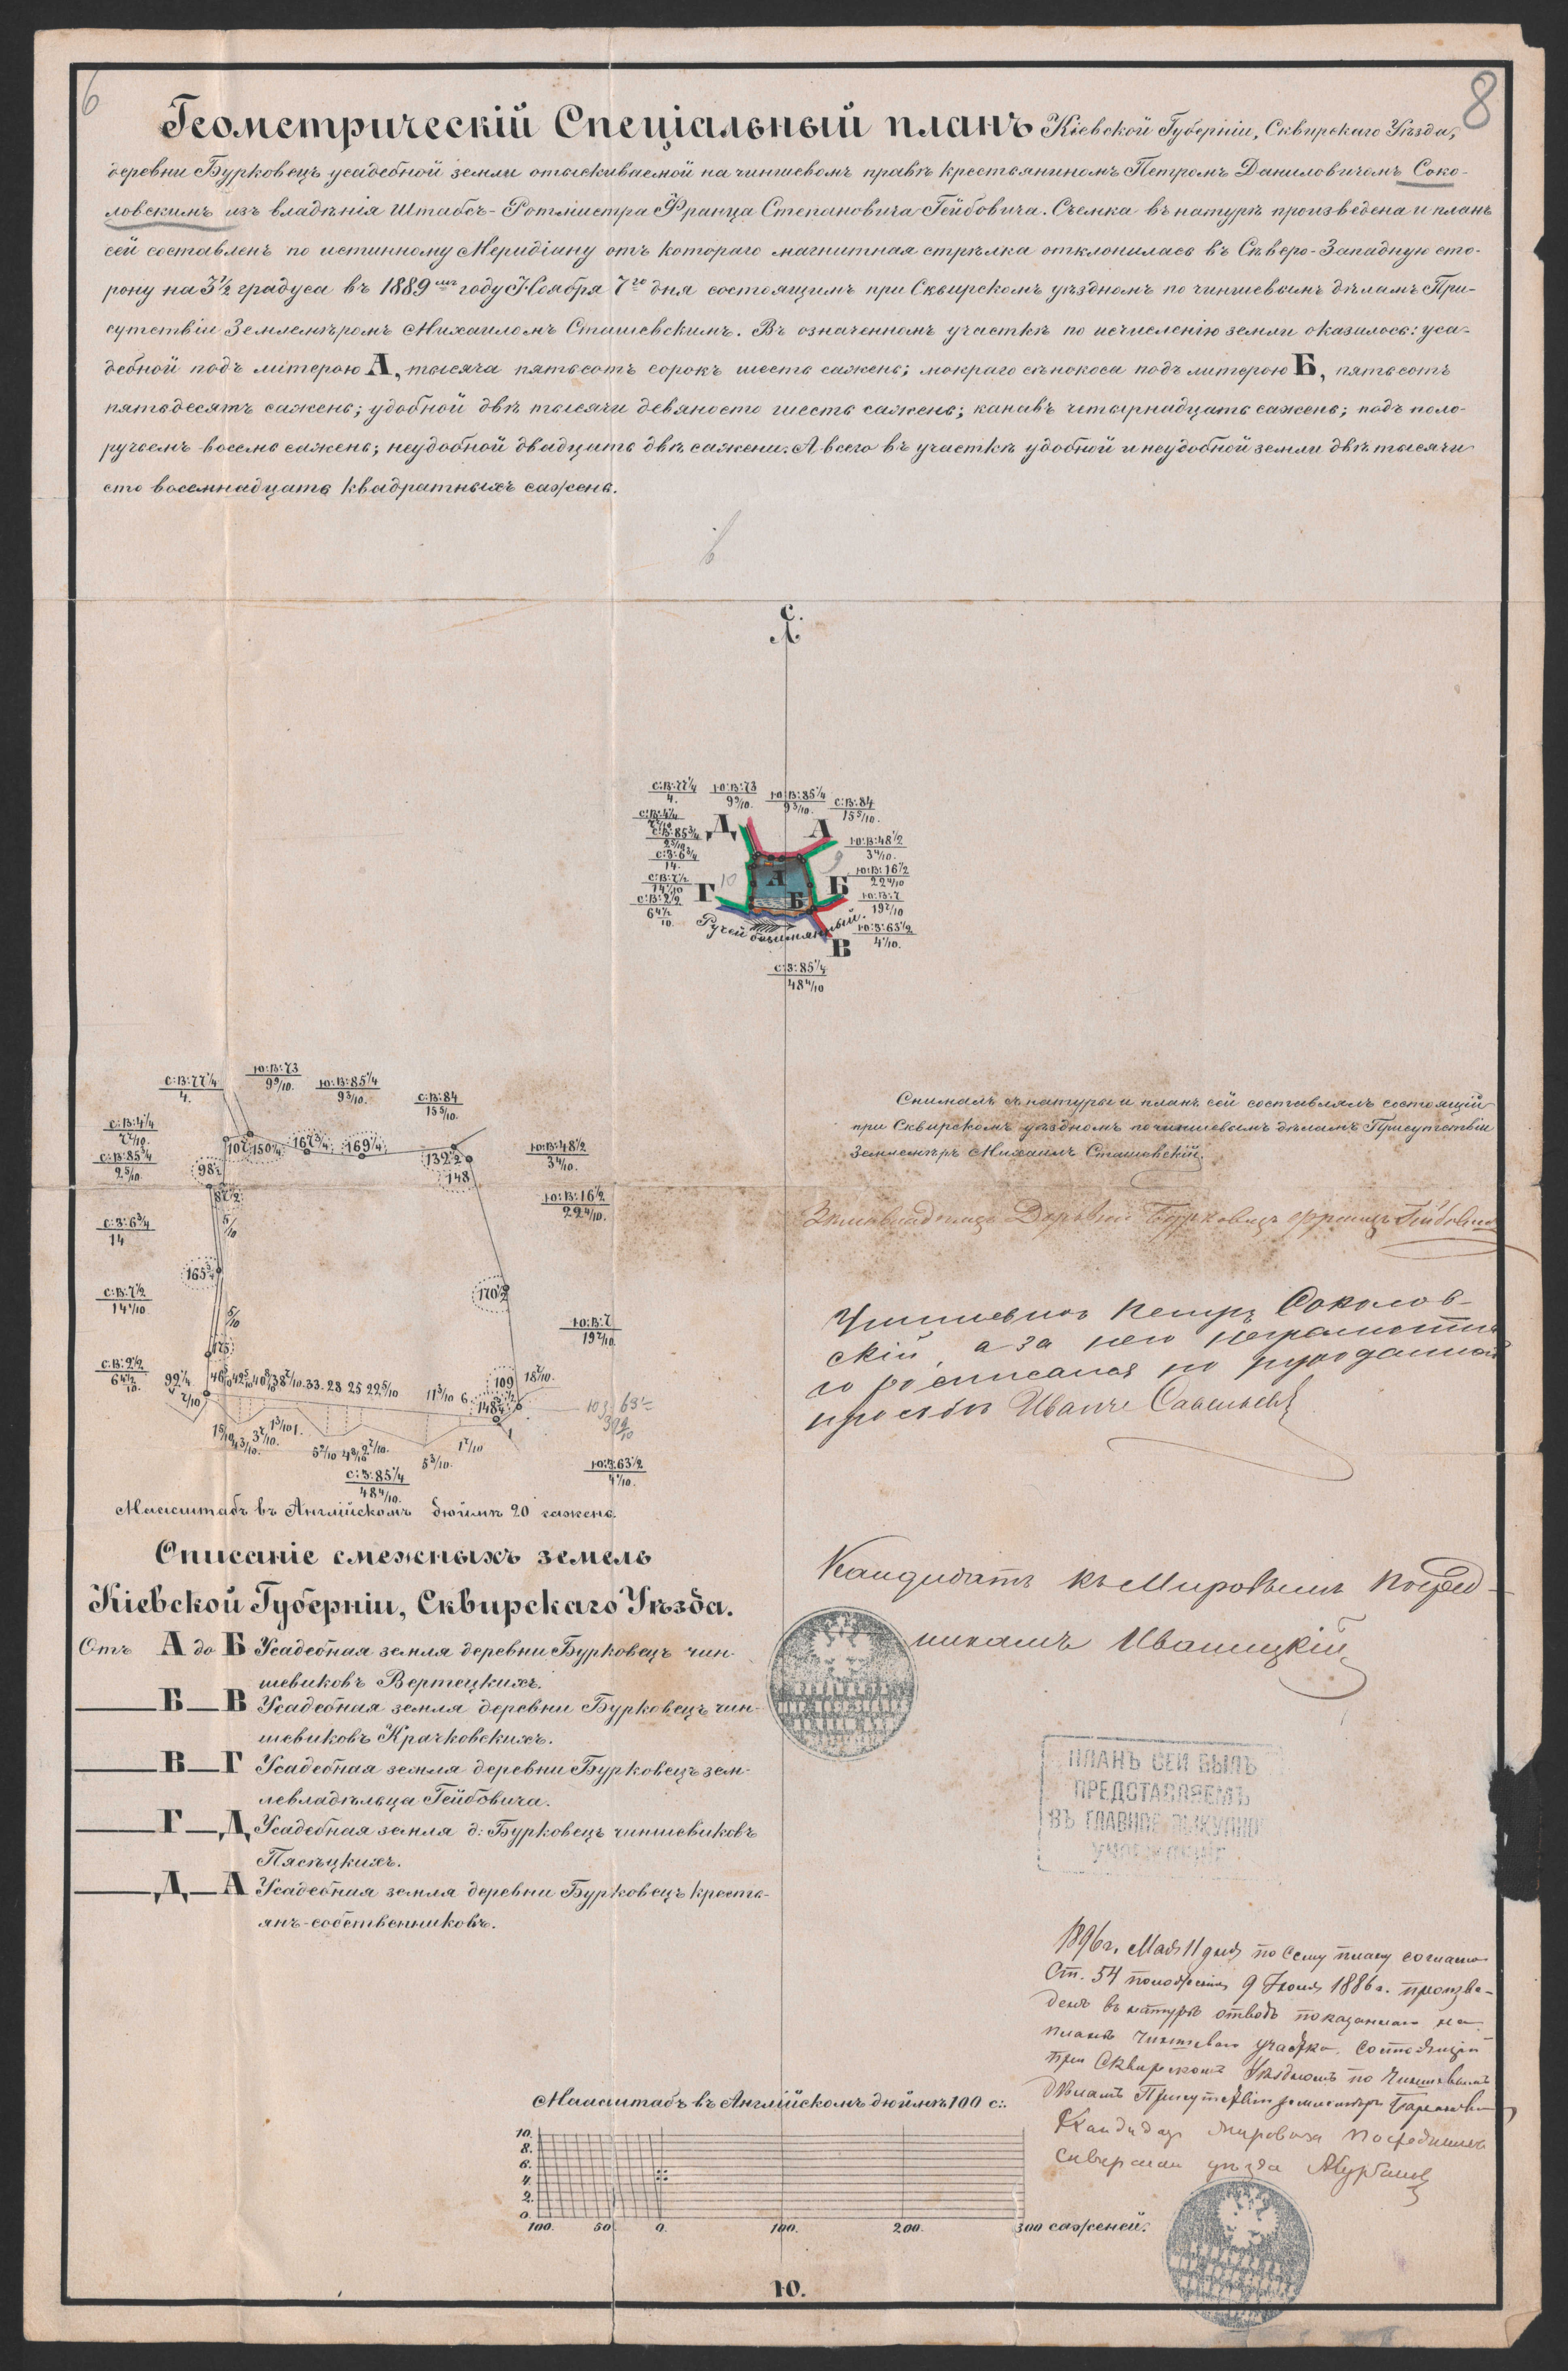 6
8
Геометрическій Спеціальный планъ Кіевской Губерніи, Сквирскаго Уѣзда,
деревни Бурковецъ усадебной земли отыскиваемой на чиншевомъ правѣ крестьяниномъ Петромъ Даниловичомъ Соко-
ловскимъ изъ владѣнія Штабсъ-Ротмистра Франца Степановича Гейбовича. Съемка въ натурѣ произведена и планъ
сей составленъ по истинному Меридіану отъ котораго магнитная стрѣлка отклонилась въ Сѣверо-Западную сто-
рону на 3½ градуса въ 1889мъ году Ноября 7го дня состоящимъ при Сквирскомъ уѣздномъ по чиншевымъ дѣламъ При-
сутствіи Землемѣромъ Михаиломъ Сташевскимъ. Въ означенномъ участкѣ по исчисленію земли оказалось: уса-
дебной подъ литерою А, тысяча пятьсотъ сорокъ шесть сажень; мокраго сѣнокоса подъ литерою Б, пятьсотъ
пятьдесятъ сажень; удобной двѣ тысячи девяносто шесть сажень; канавъ четырнадцать сажень; подъ поло-
ручьемъ восемь сажень; неудобной двадцать двѣ сажени. А всего въ участкѣ удобной и неудобной земли двѣ тысячи
сто восемнадцать квадратныхъ сажень.
С.
С:В:77¼ Ю:В:73 Ю:В:85¼ С:В:84
4. 9 9/10. 9 3/10. 15 5/10.
С:В:4¼
С:В:85¾ Д А Ю:В:48½
2 5/10. 3 4/10.
С:З:6¾ 9 Ю:В:16½
14. 22 4/10
С:В:7½ 10 А Б Ю:В:7
14 1/10 Г Б 19 2/10
С:В:2½ Ю:З:63½
Ручей безимянный. 4 1/10.
В
С:З:85¼
48 4/10
С:В:77¼ Ю:В:73 Ю:В:85¼ С:В:84
4. 9 9/10. 9 3/10. 15 5/10.
С:В:4¼
С:В:85¾ 107 150¼ 167¾ 169¼ 132½ Ю:В:48½
2 5/10. 98½ 148 3 4/10.
87½ Ю:В:16½
22 4/10.
С:З:6¾
14
165¾ 170½
С:В:7½
14 1/10. Ю:В:7
19 2/10.
175
С:В:2½ 99¼ 33. 28 25 22 5/10 11 3/10 6 109 18 7/10.
148¼
5 3/10. 1 7/10
С:З:85¼ Ю:З:63½
48 4/10. 4 1/10.
Масштабъ въ Англійскомъ дюймѣ 20 сажень.
Снималъ съ натуры и планъ сей составлялъ состоящій
при Сквирскомъ уѣздномъ по чиншевымъ дѣламъ Присутствіи
Землемѣръ Михаилъ Сташевскій.
Землевладѣлецъ Деревни Бурковецъ Францъ Гейбовичъ
Чиншевикъ Петръ Соколов-
скій, а за него неграмотна-
го росписался по рукоданной
просьбѣ Иванъ Савельевъ
Кандидатъ къ Мировымъ Посред-
никамъ Иваницкій
Описаніе смежныхъ земель
Кіевской Губерніи, Сквирскаго Уѣзда.
Отъ А до Б Усадебная земля деревни Бурковецъ чин-
шевиковъ Вертецкихъ.
Б—В Усадебная земля деревни Бурковецъ чин-
шевиковъ Крачковскихъ.
В—Г Усадебная земля деревни Бурковецъ зем-
левладѣльца Гейбовича.
Г—Д Усадебная земля д: Бурковецъ чиншевиковъ
Пясецкихъ.
Д—А Усадебная земля деревни Бурковецъ кресть-
янъ-собственниковъ.
ПЛАНЪ СЕЙ БЫЛЪ
ПРЕДСТАВЛЯЕМЪ
ВЪ ГЛАВНОЕ ВЫКУПНОЕ
УЧРЕЖДЕНІЕ
1896 г. Мая 11 дня по сему плану согласно
Ст. 54 положенія 9 Іюня 1886 г. произве-
денъ въ натурѣ отводъ показаннаго на
планѣ чиншеваго участка. Состоящій
при Сквирскомъ Уѣздномъ по Чиншевымъ
дѣламъ Присутствіи землемѣръ
Кандидатъ Мироваго Посредника
Сквирскаго уѣзда
Масштабъ въ Англійскомъ дюймѣ 100 с:.
10.
8.
6.
4.
2.
0.
100. 50 0. 100. 200. 300 саженей.
Ю.